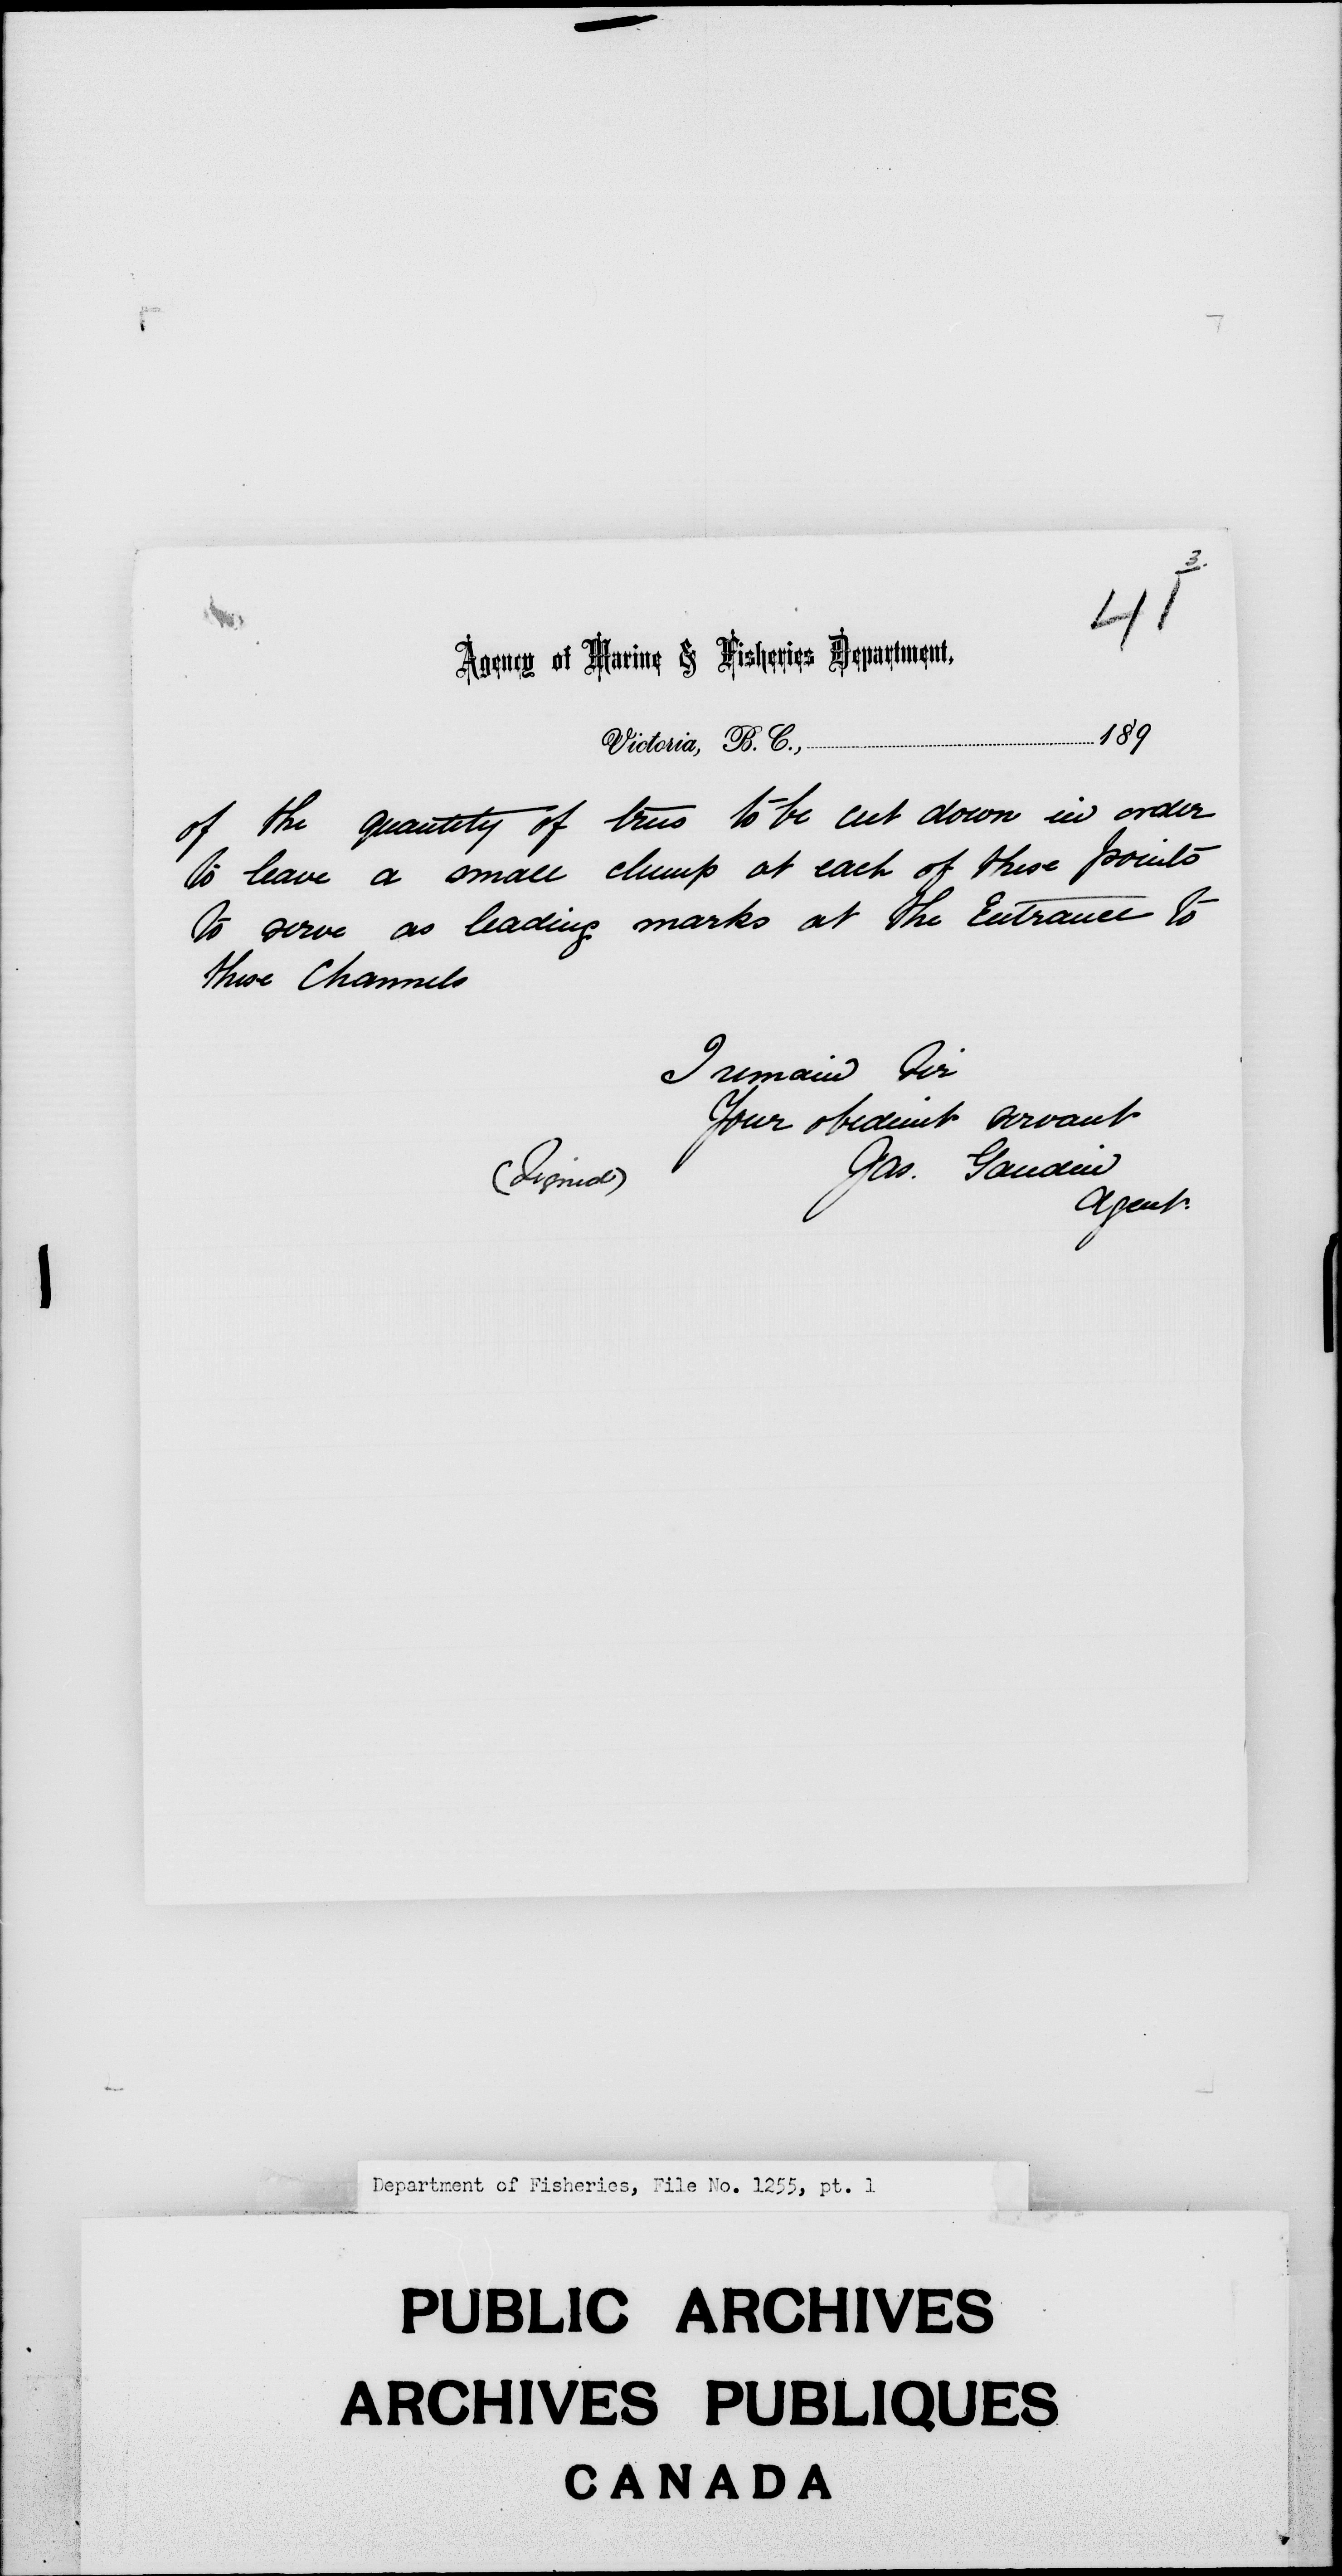 3.
41
Agency of Marine & Fisheries Department,
Victoria, B. C., 189
of the quantity of trees to be cut down in order
to leave a small clump at each of these points
to serve as leading marks at the Entrance to
these Channels
I remain Sir
Your obedient servant
(Signed) Jas. Gaudin
Agent.
Department of Fisheries, File No. 1255, pt. 1
PUBLIC ARCHIVES
ARCHIVES PUBLIQUES
CANADA